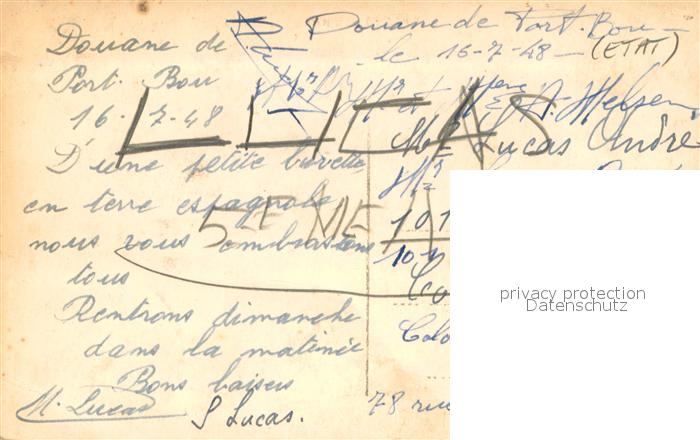 Douane de
Port. Bou
16-7-48
D'une petite buvette,
en terre espagnole
nous vous embrassons
tous
Rentrons dimanche
dans la matinée
Bons baisers
M. Lucas
S Lucas.
Douane de Port. Bou
le 16-7-48 (ETAT)
LUCAS
5ET ME
Mr et Mme
Mr Lucas André
101
10
Colo
78 rue
privacy protection
Datenschutz